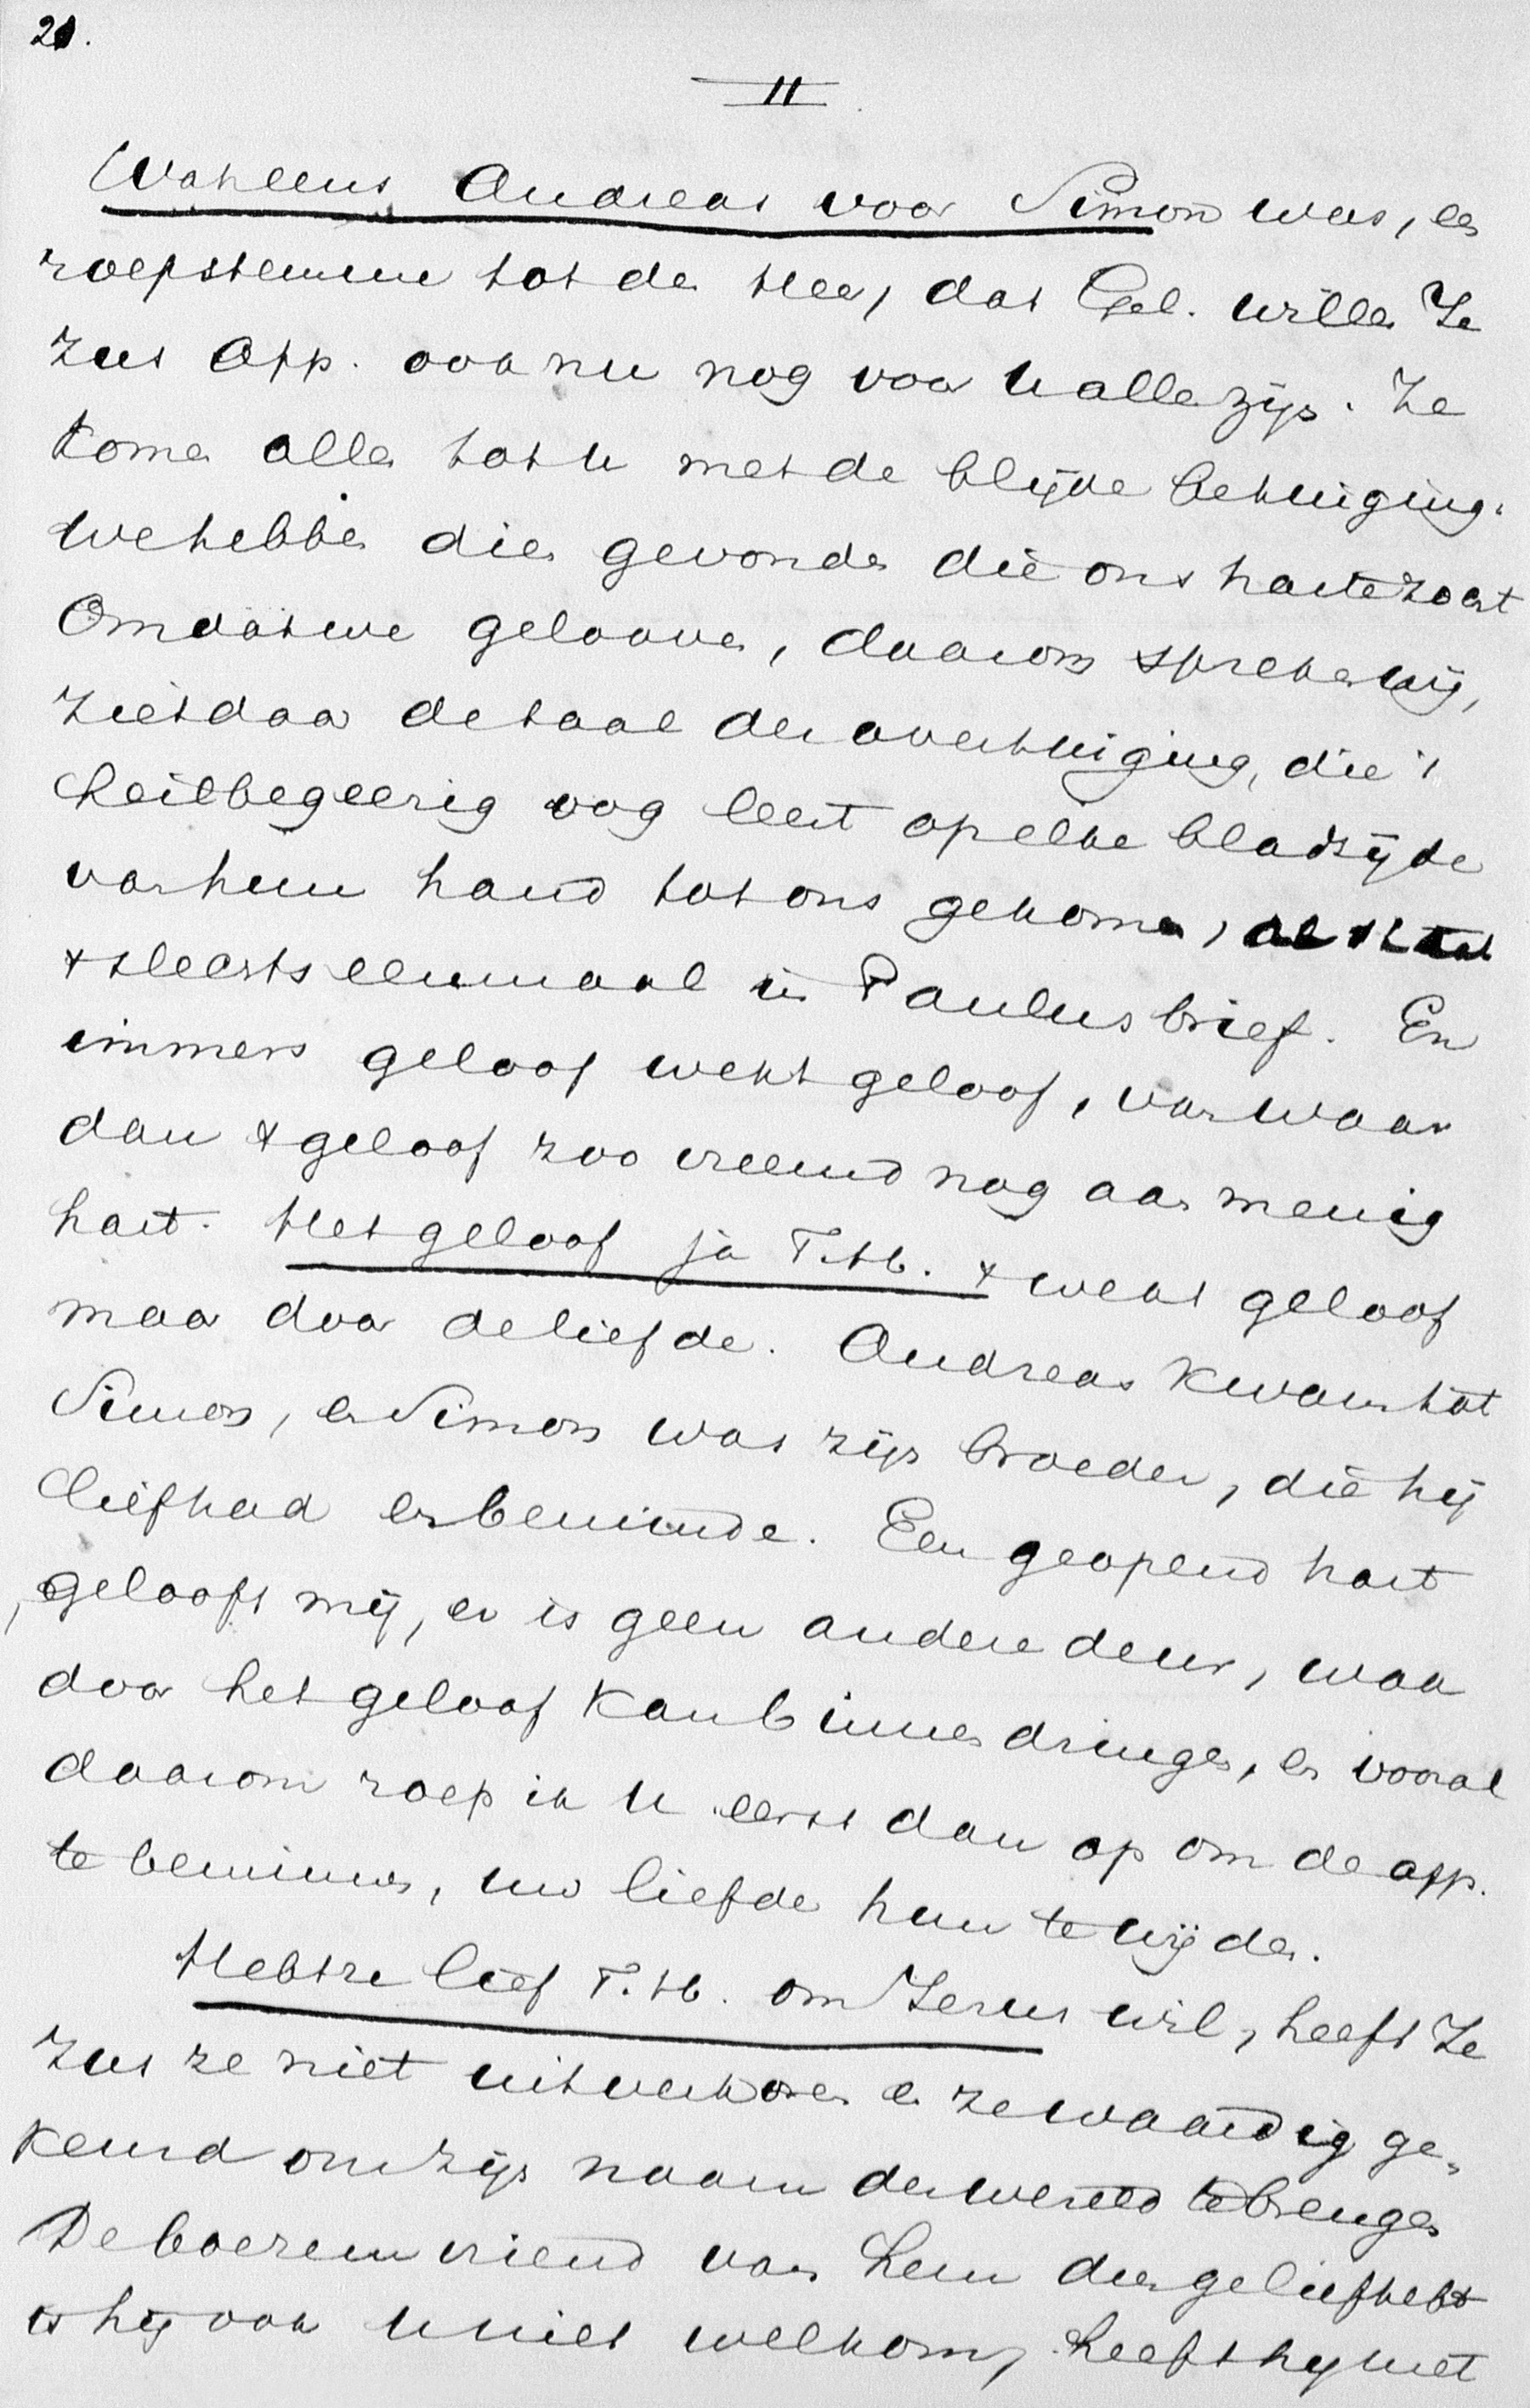 21.
II
Wat eens Andreas voor Simon was, een
roepstemme tot den Heer, dat Gel. willen Je
zus App. ook nu nog voor u allen zijn. Ze
komen allen tot u met de blijde betuiging.
we hebben dien gevonden die ons harte zocht
Omdat we gelooven, daarom spreken wij,
ziet daar de taal der overtuiging, die 't
heilbegeerig oog leest op elke bladzijde
van hun hand tot ons gekomen,
+ slechts eenmaal in Paulus brief. En
immers geloof wekt geloof, van waar
dan + geloof zoo vreemd nog aan menig
hart. Het geloof ja T.H. + wekt geloof
maar door de liefde. Andreas kwam tot
Simon, en Simon was zijn broeder, die hij
liefhad en beminde. Een geopend hart
, gelooft mij, er is geen andere deur, waar
door het geloof kan binnendringen, en vooral
daarom roep ik u eerst dan op om de app.
te beminnen, uw liefde hun te wijden.
Hebt ze lief T.H. om Jezus wil, heeft Je
zus ze niet uitverkoren en ze waardig ge„
keurd om zijn naam der wereld te brengen
De boezemvriend van hem dien ge liefhebt
is hij ook u niet welkom, heeft hij niet